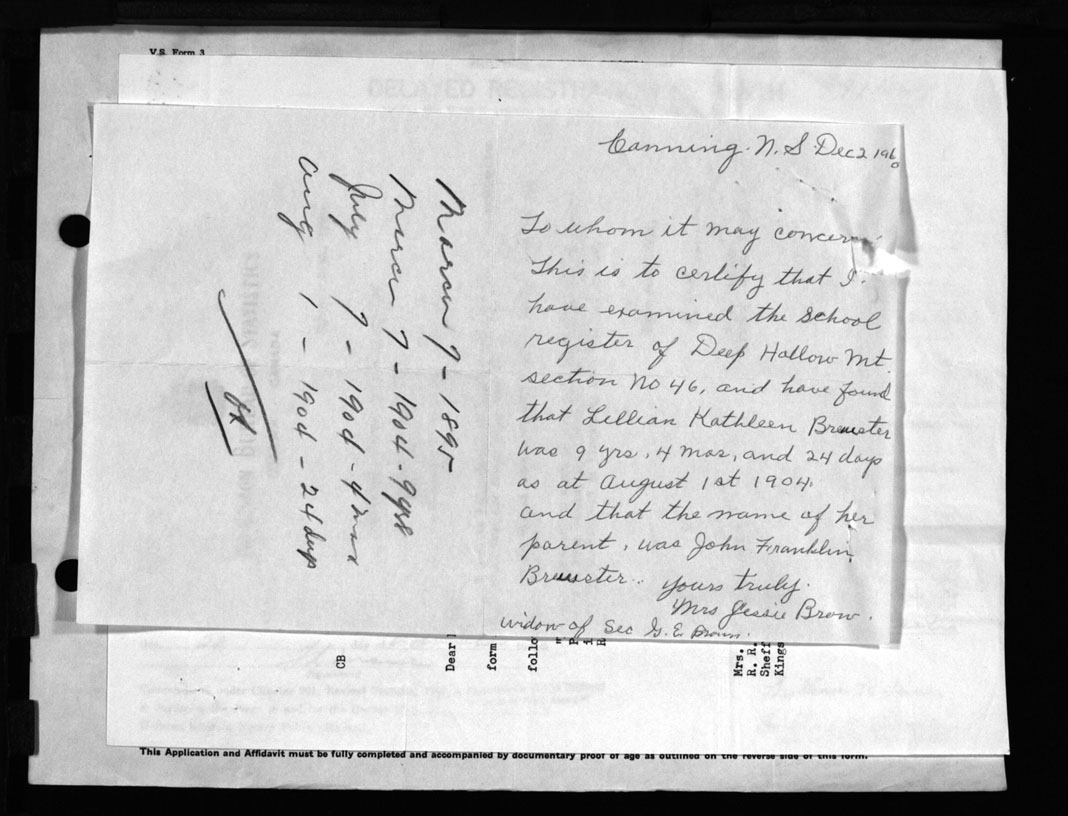 V.S. Form 3
DELAYED REGISTRATION
Canning. N.S. Dec 2 1960
To whom it may concern.
This is to certify that I.
have examined the School
register of Deep Hallow Mt.
section No 46, and have found
that Lillian Kathleen Brewster
was 9 yrs, 4 mos, and 24 days
as at August 1st 1904.
and that the name of her
parent, was John Franklin
Brewster.. yours truly.
Mrs Jessie Brow.
widow of Sec G. E. Brown.
March 7 - 1895
March 7 - 1904 - 9 yrs
July 7 - 1904 - 4 mos
Aug 1 - 1904 - 24 days
OK
CB
Dear
form
follo
Mrs.
R. R.
Sheff
Kings
This Application and Affidavit must be fully completed and accompanied by documentary proof of age as outlined on the reverse side of this form.